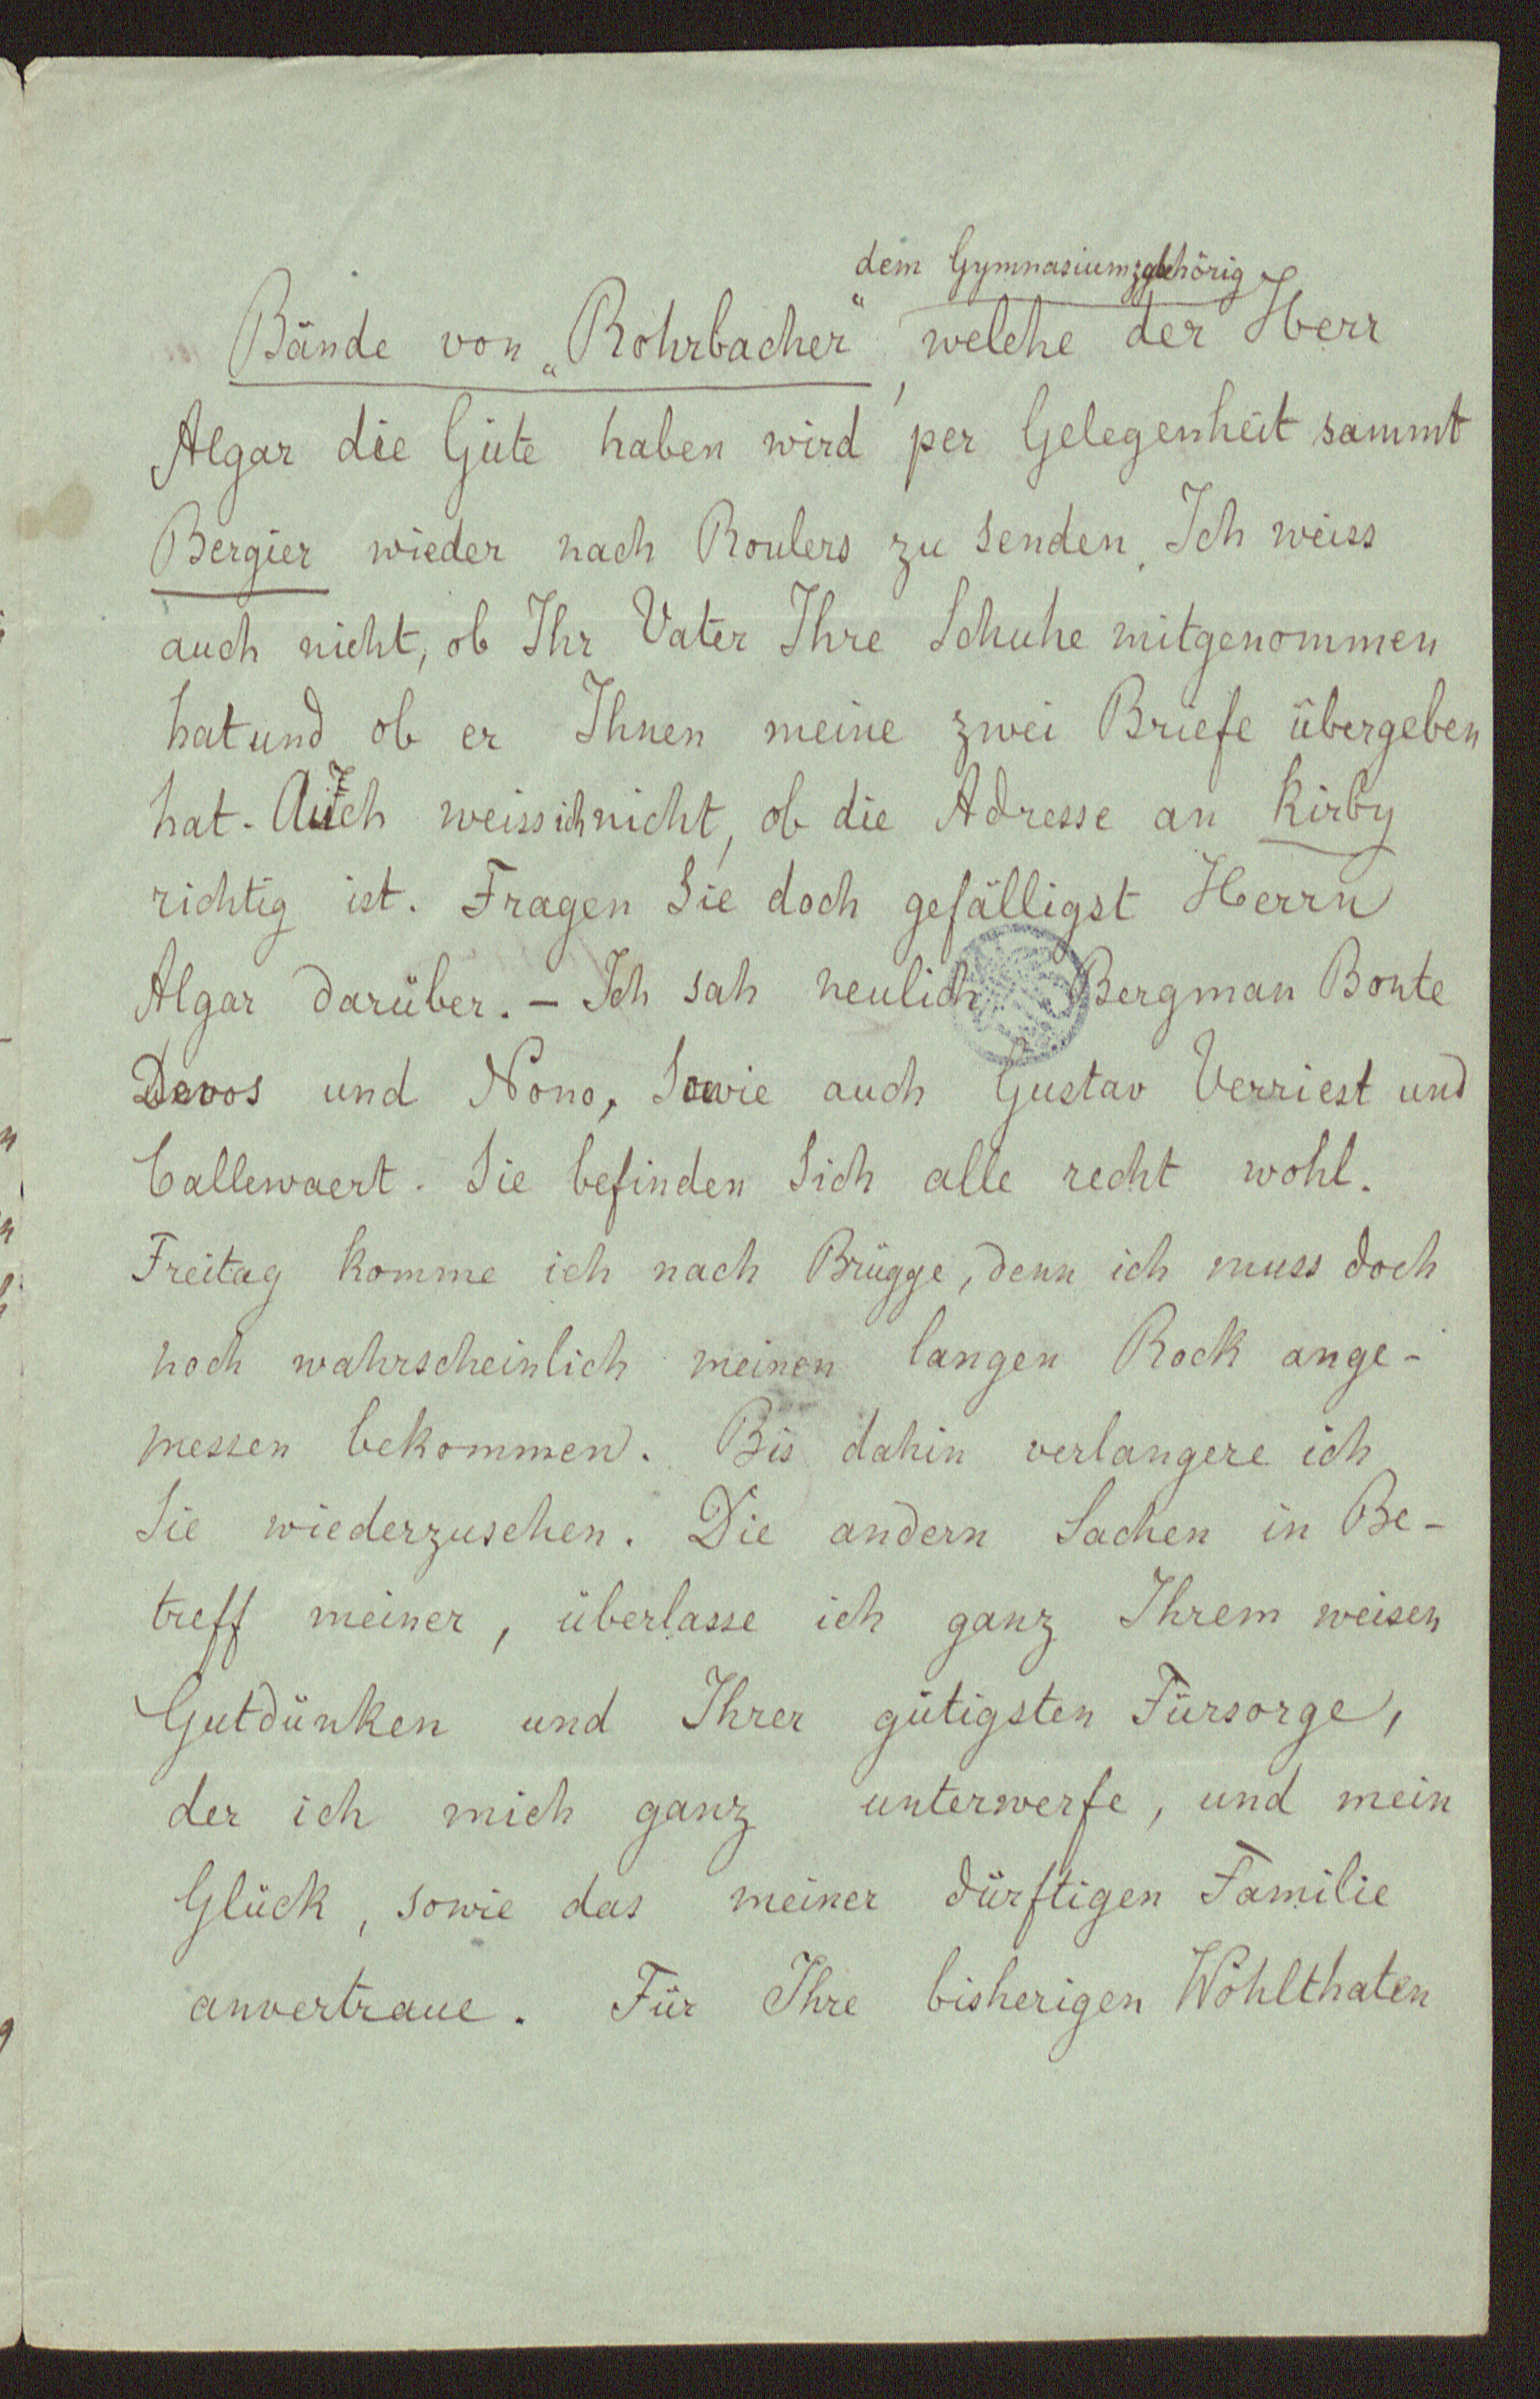 dem Gymnasium gehörig
Bände von „Rohrbacher“, welche der Herr
Algar die Güte haben wird per Gelegenheit sammt
Bergier wieder nach Roulers zu senden. Ich weiss
auch nicht, ob Ihr Vater Ihre Schuhe mitgenommen
hat und ob er Ihnen meine zwei Briefe übergeben
hat. Auch weiss ich nicht, ob die Adresse an Kirby
richtig ist. Fragen Sie doch gefälligst Herrn
Algar darüber. – Ich sah neulich Bergman Bonte
Devos und Nono, sowie auch Gustav Verriest und
Callewaert. Sie befinden Sich alle recht wohl.
Freitag komme ich nach Brügge, denn ich muss doch
noch wahrscheinlich meinen langen Rock ange-
messen bekommen. Bis dahin verlangere ich
Sie wiederzusehen. Die andern Sachen in Be-
treff meiner, überlasse ich ganz Ihrem weisen
Gutdünken und Ihrer gütigsten Fürsorge,
der ich mich ganz unterwerfe, und mein
Glück, sowie das meiner dürftigen Familie
anvertraue. Für Ihre bisherigen Wohlthaten